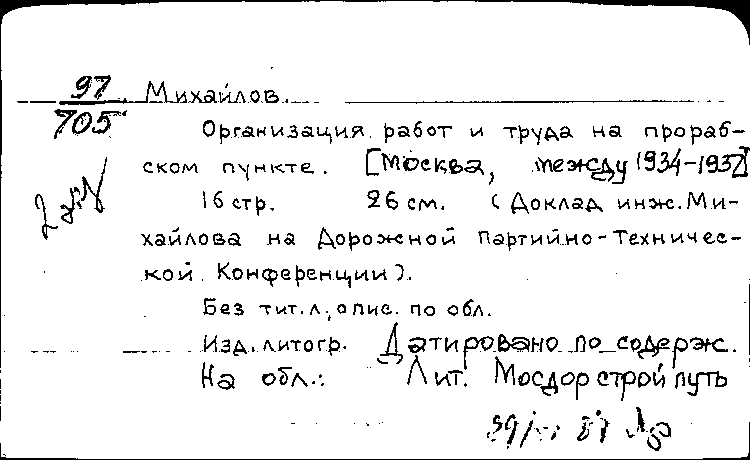 97 Михайлов.
705
Организация работ и труда на прораб-
ском пункте. [Москва, между 1934-1937]
16 стр. 26 см. (Доклад инж. Ми-
хайлова на Дорожной Партийно-Техничес-
кой Конференции).
Без тит. л., опис. по обл.
Изд. литогр. Датировано по содерж.
На обл.: Лит. Мосдорстройпуть